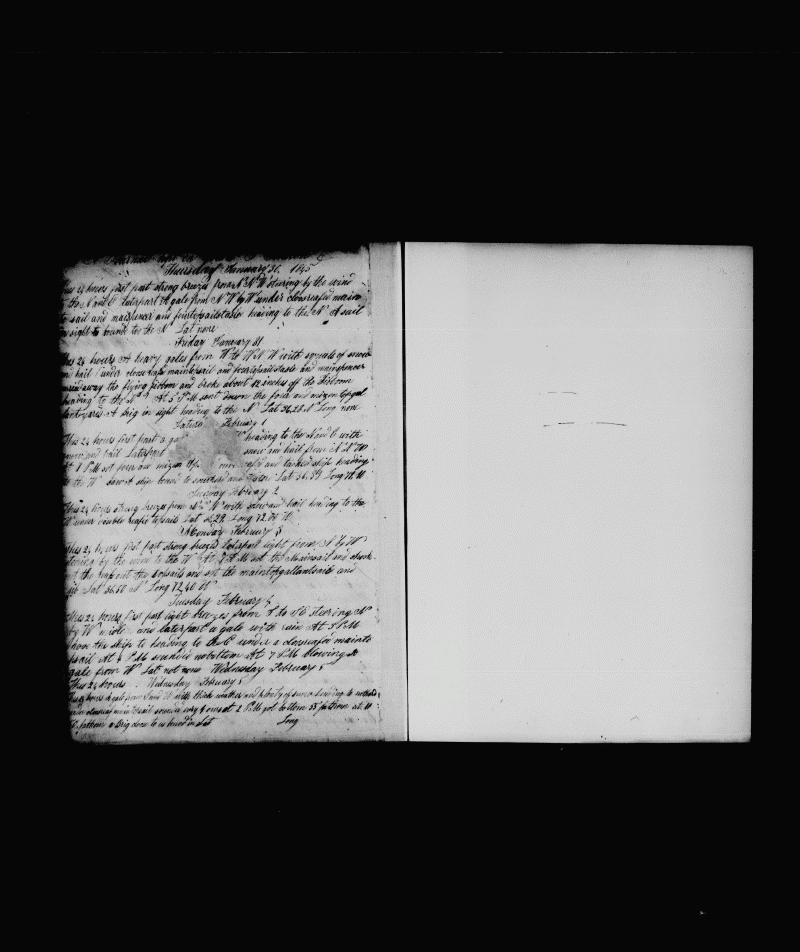 Thursday January 30, 1845
This 24 hours first part strong breezes from N N W steering by the wind
to the N and E Laterpart A gale from N W by W under closereafed main
topsail and mainspencer and foretopmaststaysail heading to the N A sail
in sight bound to the N Lat none
Friday January 31
This 24 hours A heavy gales from W to W N W with squals of snow
and hail under close reafe maintopsail and foretopmaststaysail and mainspencer
carried away the flying jibboom and broke about 12 inches off the Jibboom
heading to the N At 5 P M sent down the fore and mizen topgal
lantyards A brig in sight heading to the N Lat 36,28 N Long none
Saturd February 1
This 24 hours first part a ga heading to the N and E with
snow and hail Laterpart snow and hail from N N W
At 1 P M set fore and mizen and tacked ship heading
to the W Saw A ship bound to Lat 36.39 Long 72
Sunday February 2
This 24 hours strong breezes from N W with snow and hail heading to the
W under double reafe topsails Lat 36,29 Long 72.04 W
Monday February 3
This 24 hours first part strong breezes Laterpart light from N by W
steering by the wind to the W At 7 A M set the Mainsail and shook
out the reafs out the topsails and set the maintopgallantsail and
jib Lat 36.50 N Long 72,40 W
Tuesday February 4
This 24 hours first part light breezes from S to S E steering N
by W and laterpart a gale with rain At 3 P M
hove the ship to heading to the E under a closereafed mainto
psail At 4 P M sounded nobottom At 7 P M blowing A
gale from W Lat not none Wednesday February 5
This 24 hours Wednesday February 5
This 24 hours A gale from with thick weather and plenty of snow heading to
under closereaf maintopsail sounded every 4 ours at 2 P M got bottom 35 fathom at 10
fathom a Brig close to us bound in Lat Long